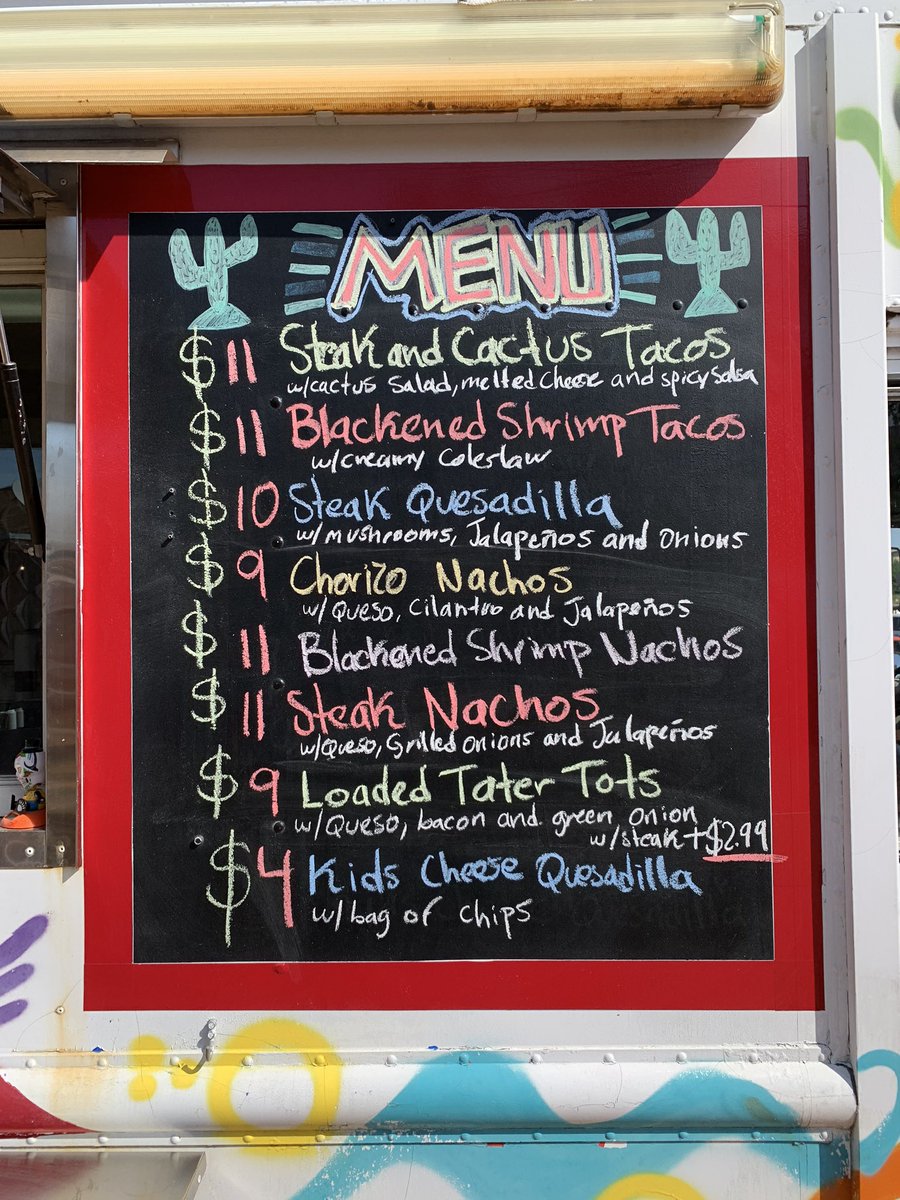 MENU
$11 Steak and Cactus Tacos
w/cactus salad, melted cheese and spicy salsa
$11 Blackened Shrimp Tacos
w/creamy coleslaw
$10 Steak Quesadilla
w/mushrooms, Jalapeños and onions
$9 Chorizo Nachos
w/Queso, Cilantro and Jalapeños
$11 Blackened Shrimp Nachos
$11 Steak Nachos
w/Queso, Grilled onions and Jalapeños
$9 Loaded Tater Tots
w/Queso, bacon and green onion
w/steak+$2.99
$4 Kids Cheese Quesadilla
w/bag of chips